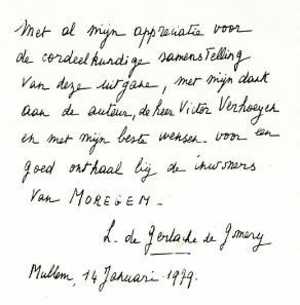 Met al mijn appreciatie voor
de oordeelkundige samenstelling
van deze uitgave, met mijn dank
aan de auteur, de heer Victor Verhoeyen
en met mijn beste wensen voor een
goed onthaal bij de inwoners
van MOREGEM.
L. de Gerlache de Gomery
Mullem, 14 Januari 1979.